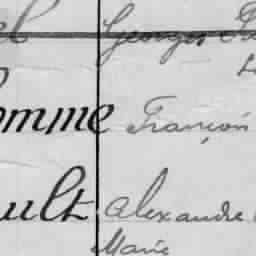 el Georges
omme François
ault Alexandre
Marie